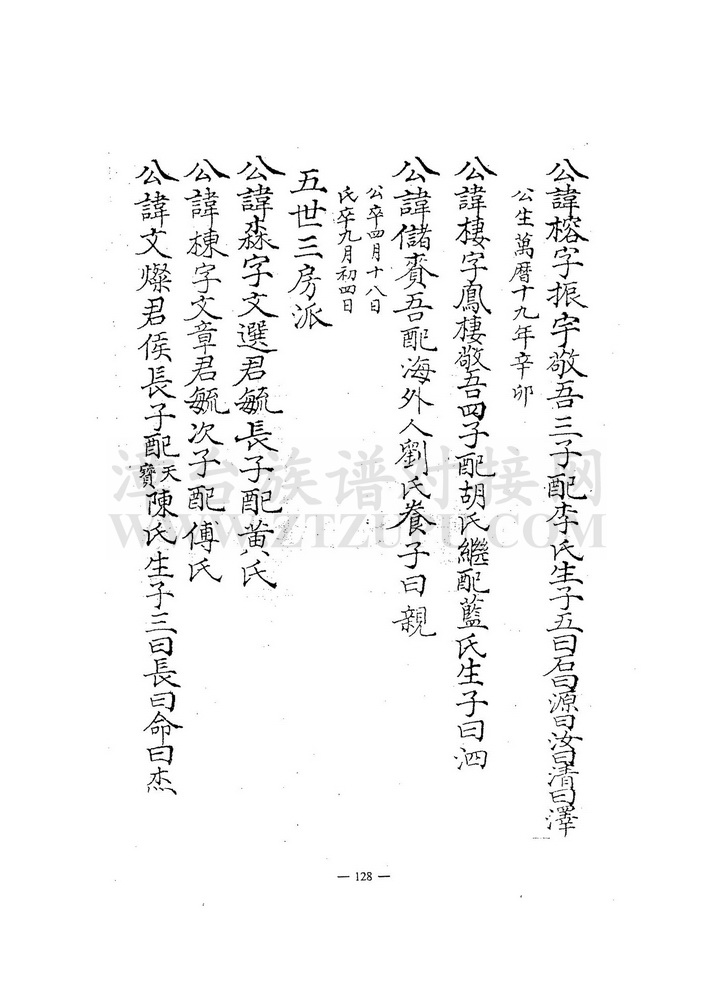 公諱榕字振宇敬吾三子配李氏生子五曰石曰源曰汝曰清曰澤
公生萬曆十九年辛卯
公諱棲字鳳棲敬吾四子配胡氏繼配藍氏生子曰泗
公諱儲賚吾配海外人劉氏養子曰親
公卒四月十八日
氏卒九月初四日
五世三房派
公諱森字文選君毓長子配黃氏
公諱棟字文章君毓次子配傅氏
公諱文燦君侯長子配天寶陳氏生子三曰長曰命曰杰
漳台族谱对接网
WWW.ZTZUPU.COM
— 128 —